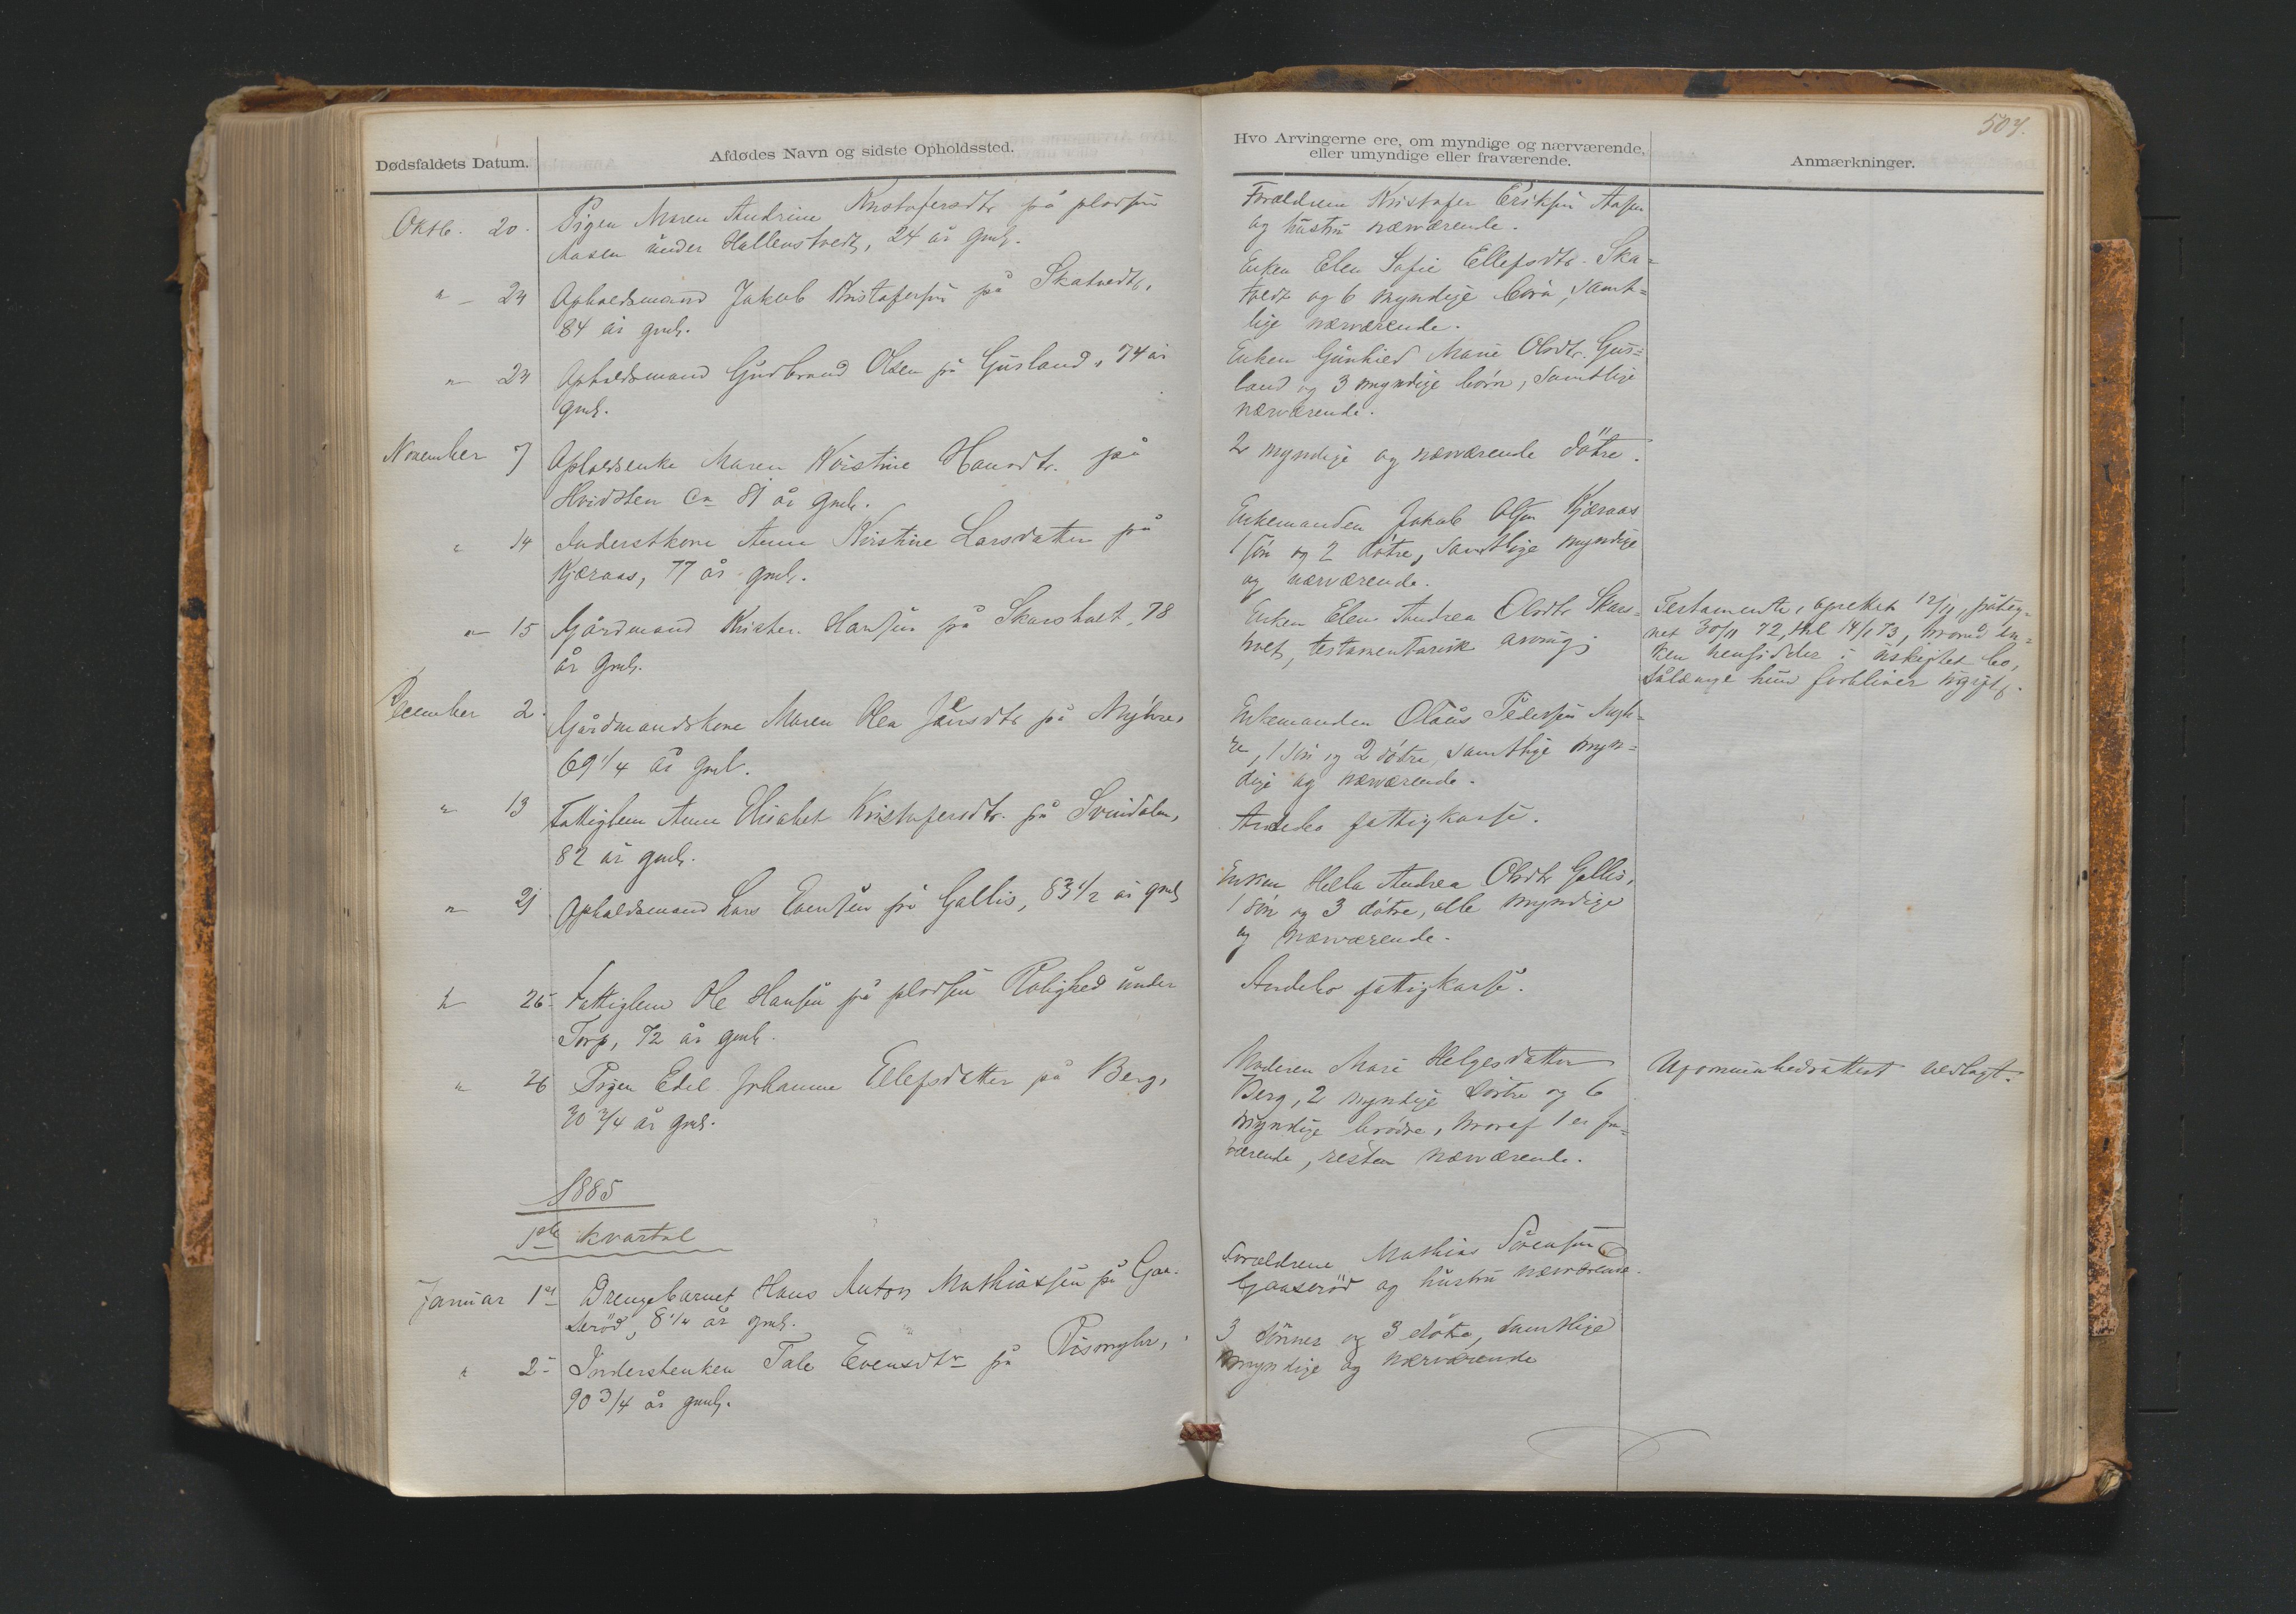 507.
Dødsfaldets Datum.
Afdødes Navn og sidste Opholdssted.
Hvo Arvingerne ere, om myndige og nærværende,
eller umyndige eller fraværende.
Anmærkninger.
Oktb. 20. Pigen Maren Andrine Kristofersdtr på pladsen
Aasen under Hallenstvedt, 24 år gml.
Forældrene Kristofer Eriksen Aasen
og hustru nærværende.
" - 24 Opholdsmand Jakob Kristofersen på Skatvedt,
84 år gml.
Enken Elen Sofie Ellefsdtr. Ska=
tvedt og 6 myndige børn, samt=
lige nærværende.
" 24 Opholdsmand Gudbrand Olsen på Gusland, 74 år
gml.
Enken Gunhild Marie Olsdtr. Gus=
land og 3 myndige børn, samtlige
nærværende.
November 7 Opholdsenke Maren Kristine Hansdtr. på
Hvidsten ca 81 år gml.
2 myndige og nærværende døtre.
" 14 Inderstkone Anne Kristine Larsdatter på
Kjæraas, 77 år gml.
Enkemanden Jakob Olsen Kjæraas
1 søn og 2 døtre, samtlige myndige
og nærværende.
" 15 Gårdmand Krister Hansen på Skarsholt, 78
år gml.
Enken Elen Andrea Olsdtr Skars=
holt, testamentarisk arving.
Testamente, oprettet 12/11, påteg=
net 30/11 72, thl 14/1 73, hvorved en=
ken hensidder i uskiftet bo,
sålænge hun forbliver ugift.
December 2. Gårdmandskone Maren Olea Jensdtr på Myhre,
69 1/4 år gml.
Enkemanden Olaus Pedersen Myh=
re, 1 søn og 2 døtre, samtlige myn=
dige og nærværende.
" 13 Fattiglem Anne Elisabet Kristofersdtr. på Svindalen,
82 år gml.
Andebo fattigkasse.
" 21 Opholdsmand Lars Evensen på Gallis, 83 1/2 år gml
Enken Hella Andrea Olsdtr Gallis,
1 søn og 3 døtre, alle myndige
og nærværende.
" 25 Fattiglem Ole Hansen på pladsen Rolighed under
Torp, 72 år gml.
Andebo fattigkasse.
" 26 Pigen Edel Johanne Ellefsdatter på Berg,
30 3/4 år gml.
Moderen Mari Helgesdatter
Berg, 2 myndige søstre og 6
myndige brødre, hvoraf 1 er fra=
værende, resten nærværende.
Uformuenhedsattest vedlagt.
1885
1ste kvartal
Januar 1st Drengebarnet Hans Anton Mathiassen på Gaa-
serød, 8 1/4 år gml.
Forældrene Mathias Sørensen
Gaaserød og hustru nærværende.
" 2- Inderstenken Tale Evensdtr på Rismyhr,
90 3/4 år gml.
3 sønner og 3 døtre, samtlige
myndige og nærværende